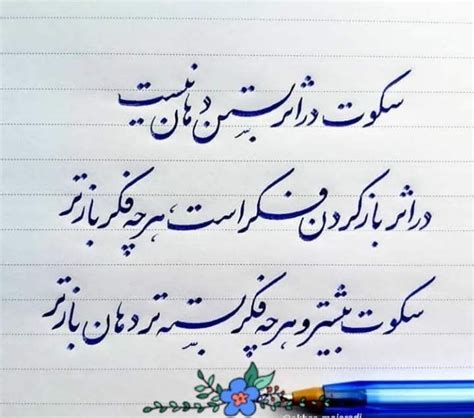 سکوت در اثر بستن دهان نیست
در اثر باز کردن فکر است، هر چه فکر باز تر
سکوت بیشتر و هر چه فکر بسته تر دهان باز تر